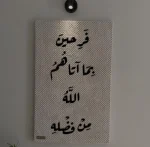 فَرِحِينَ
بِمَا آتَاهُمُ
اللَّهُ
مِنْ فَضْلِهِ